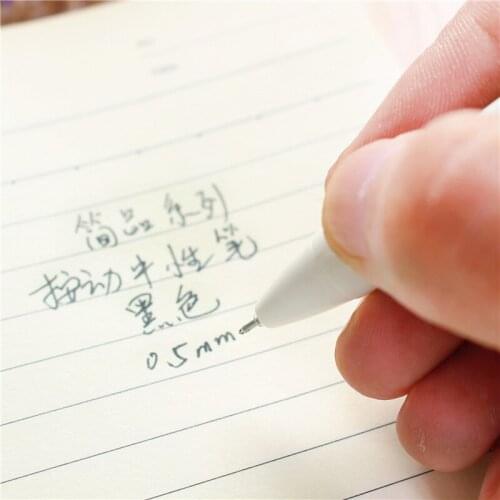 简品系列
按动中性笔
黑色
0.5mm